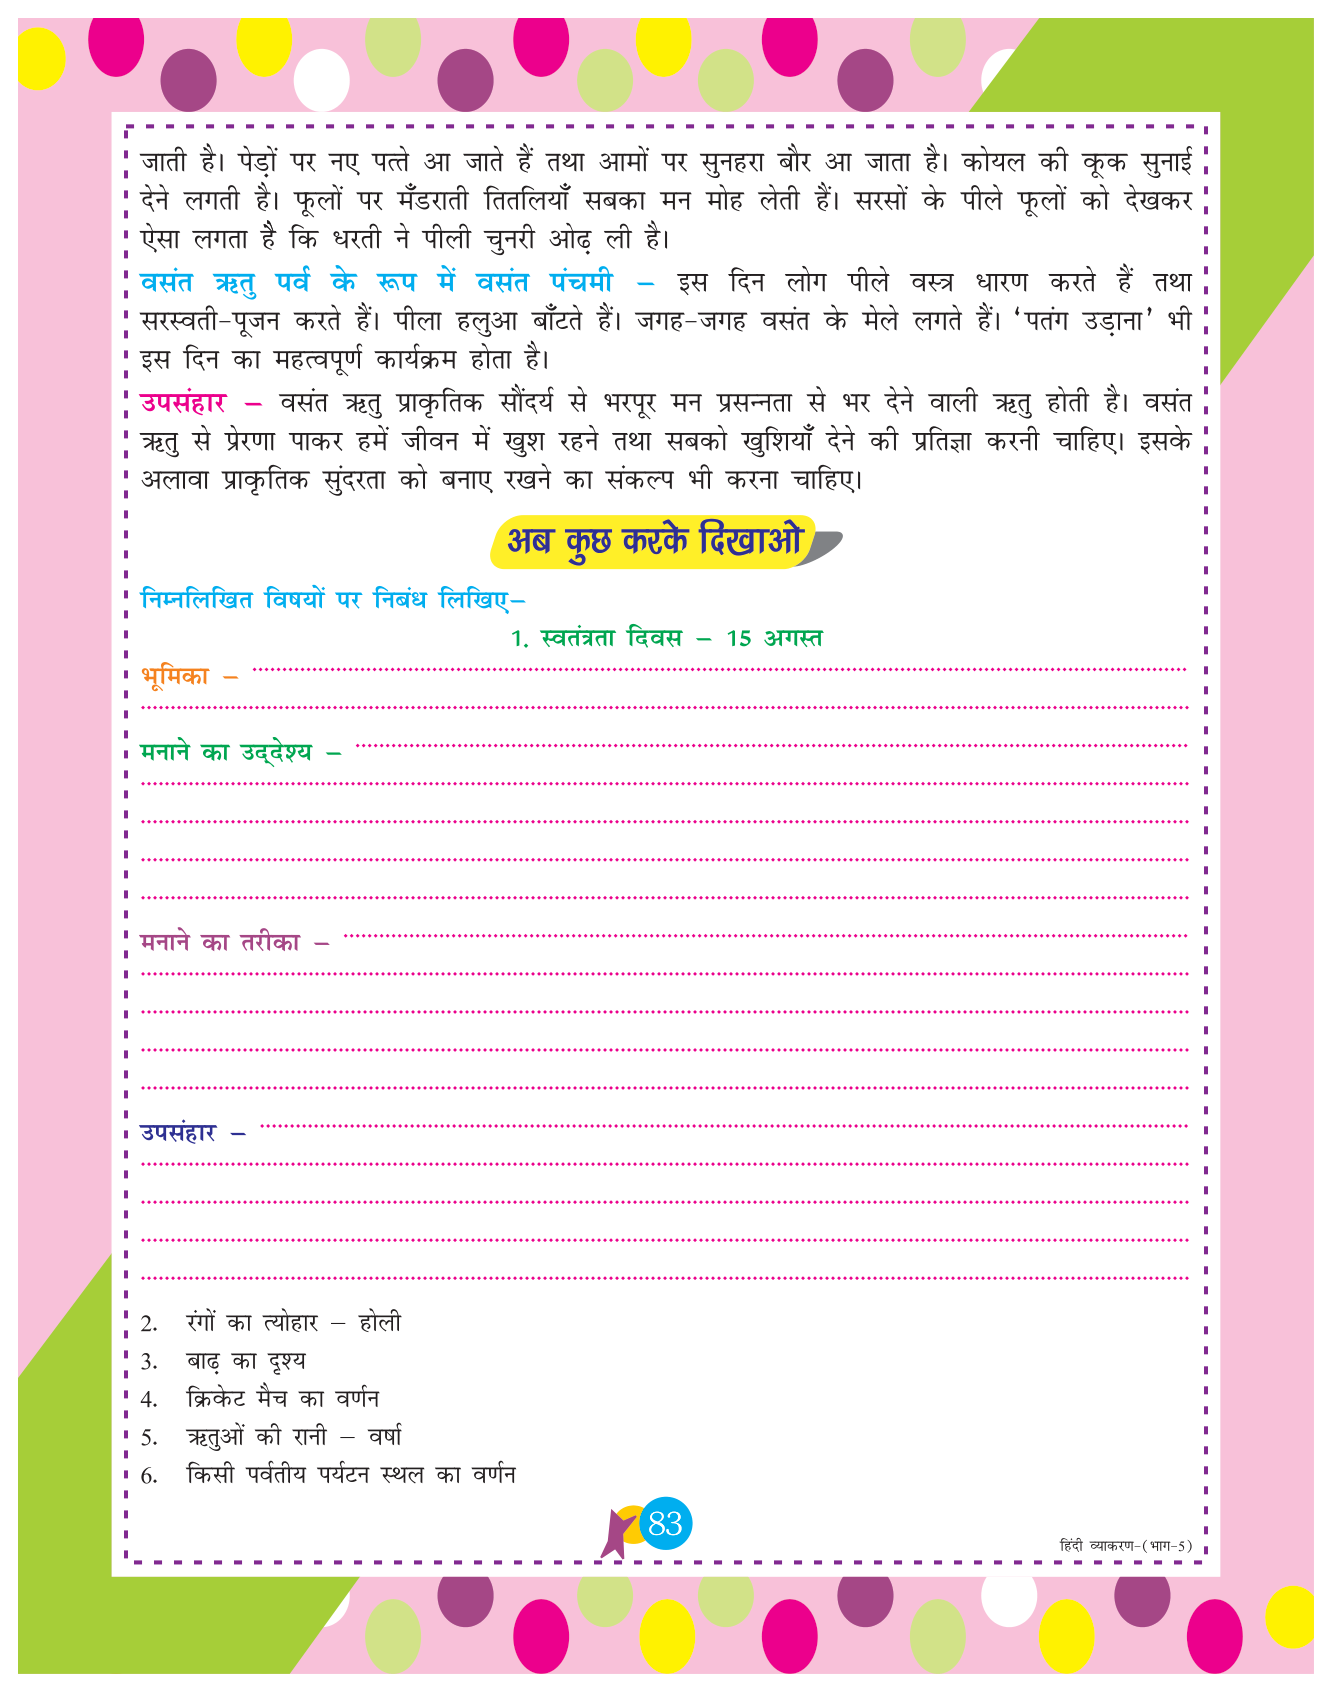 जाती है। पेड़ों पर नए पत्ते आ जाते हैं तथा आमों पर सुनहरा बौर आ जाता है। कोयल की कूक सुनाई
देने लगती है। फूलों पर मँडराती तितलियाँ सबका मन मोह लेती हैं। सरसों के पीले फूलों को देखकर
ऐसा लगता है कि धरती ने पीली चुनरी ओढ़ ली है।
वसंत ऋतु पर्व के रूप में वसंत पंचमी – इस दिन लोग पीले वस्त्र धारण करते हैं तथा
सरस्वती-पूजन करते हैं। पीला हलुआ बाँटते हैं। जगह-जगह वसंत के मेले लगते हैं। ‘पतंग उड़ाना’ भी
इस दिन का महत्वपूर्ण कार्यक्रम होता है।
उपसंहार – वसंत ऋतु प्राकृतिक सौंदर्य से भरपूर मन प्रसन्नता से भर देने वाली ऋतु होती है। वसंत
ऋतु से प्रेरणा पाकर हमें जीवन में खुश रहने तथा सबको खुशियाँ देने की प्रतिज्ञा करनी चाहिए। इसके
अलावा प्राकृतिक सुंदरता को बनाए रखने का संकल्प भी करना चाहिए।
अब कुछ करके दिखाओ
निम्नलिखित विषयों पर निबंध लिखिए–
1. स्वतंत्रता दिवस – 15 अगस्त
भूमिका –
मनाने का उद्‌देश्य –
मनाने का तरीका –
उपसंहार –
2. रंगों का त्योहार – होली
3. बाढ़ का दृश्य
4. क्रिकेट मैच का वर्णन
5. ऋतुओं की रानी – वर्षा
6. किसी पर्वतीय पर्यटन स्थल का वर्णन
83
हिंदी व्याकरण-(भाग-5)